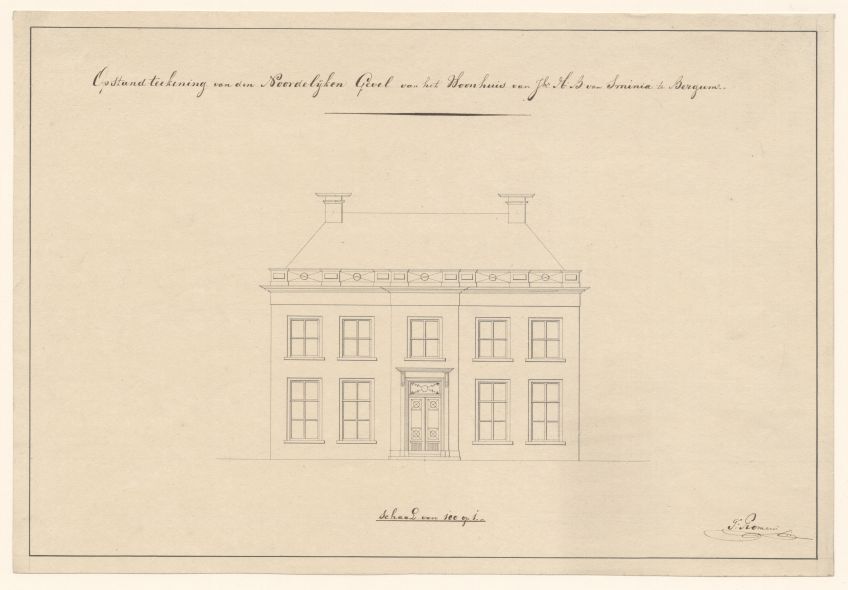 Opstandteekening van den Noordelijken Gevel van het Woonhuis van Jhr H. B. van Sminia te Bergum.
Schaal van 100 op 1.
T. Romein